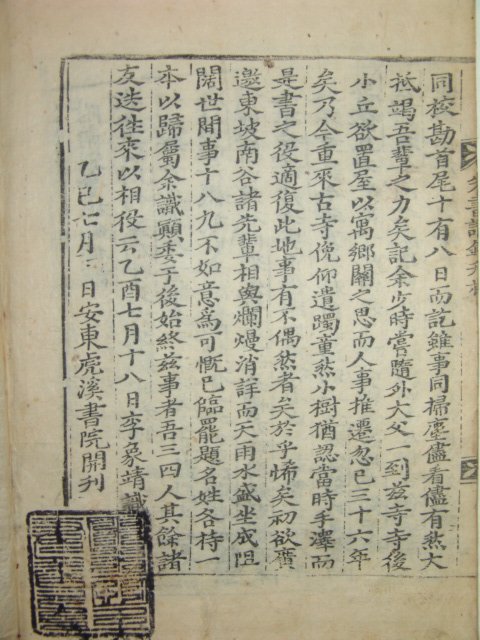 同校勘首尾十有八日而訖雖事同掃塵儘看儘有然大
抵竭吾輩之力矣記余少時嘗隨外大父一到玆寺寺後
小丘欲置屋以寓鄉關之思而人事推遷忽已三十六年
矣乃今重來古寺俛仰遺躅董然小樹猶認當時手澤而
是書之役適復此地事有不偶然者矣於乎悕矣初欲廣
邀東坡南谷諸先輩相與爛熳消詳而天雨水盛坐成阻
闊世間事十八九不如意爲可慨已臨罷題名姓各持一
本以歸屬余識顚委于後始終玆事者吾三四人其餘諸
友迭往來以相役云乙酉七月十八日李象靖識
乙巳七月日安東虎溪書院開刋